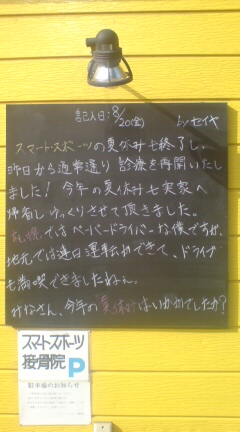 記入日:8/20(金) by セイヤ
スマート・スポーツの夏休みも終了し、
昨日から通常通り診療を再開いたし
ました!今年の夏休みも実家へ
帰省しゆっくりさせて頂きました。
札幌ではペーパードライバーな僕ですが、
地元では連日運転ができて、ドライブ
も満喫できましたねぇ。
みなさん、今年の夏休みはいかがでしたか?
スマートスポーツ
接骨院 P
駐車場のお知らせ